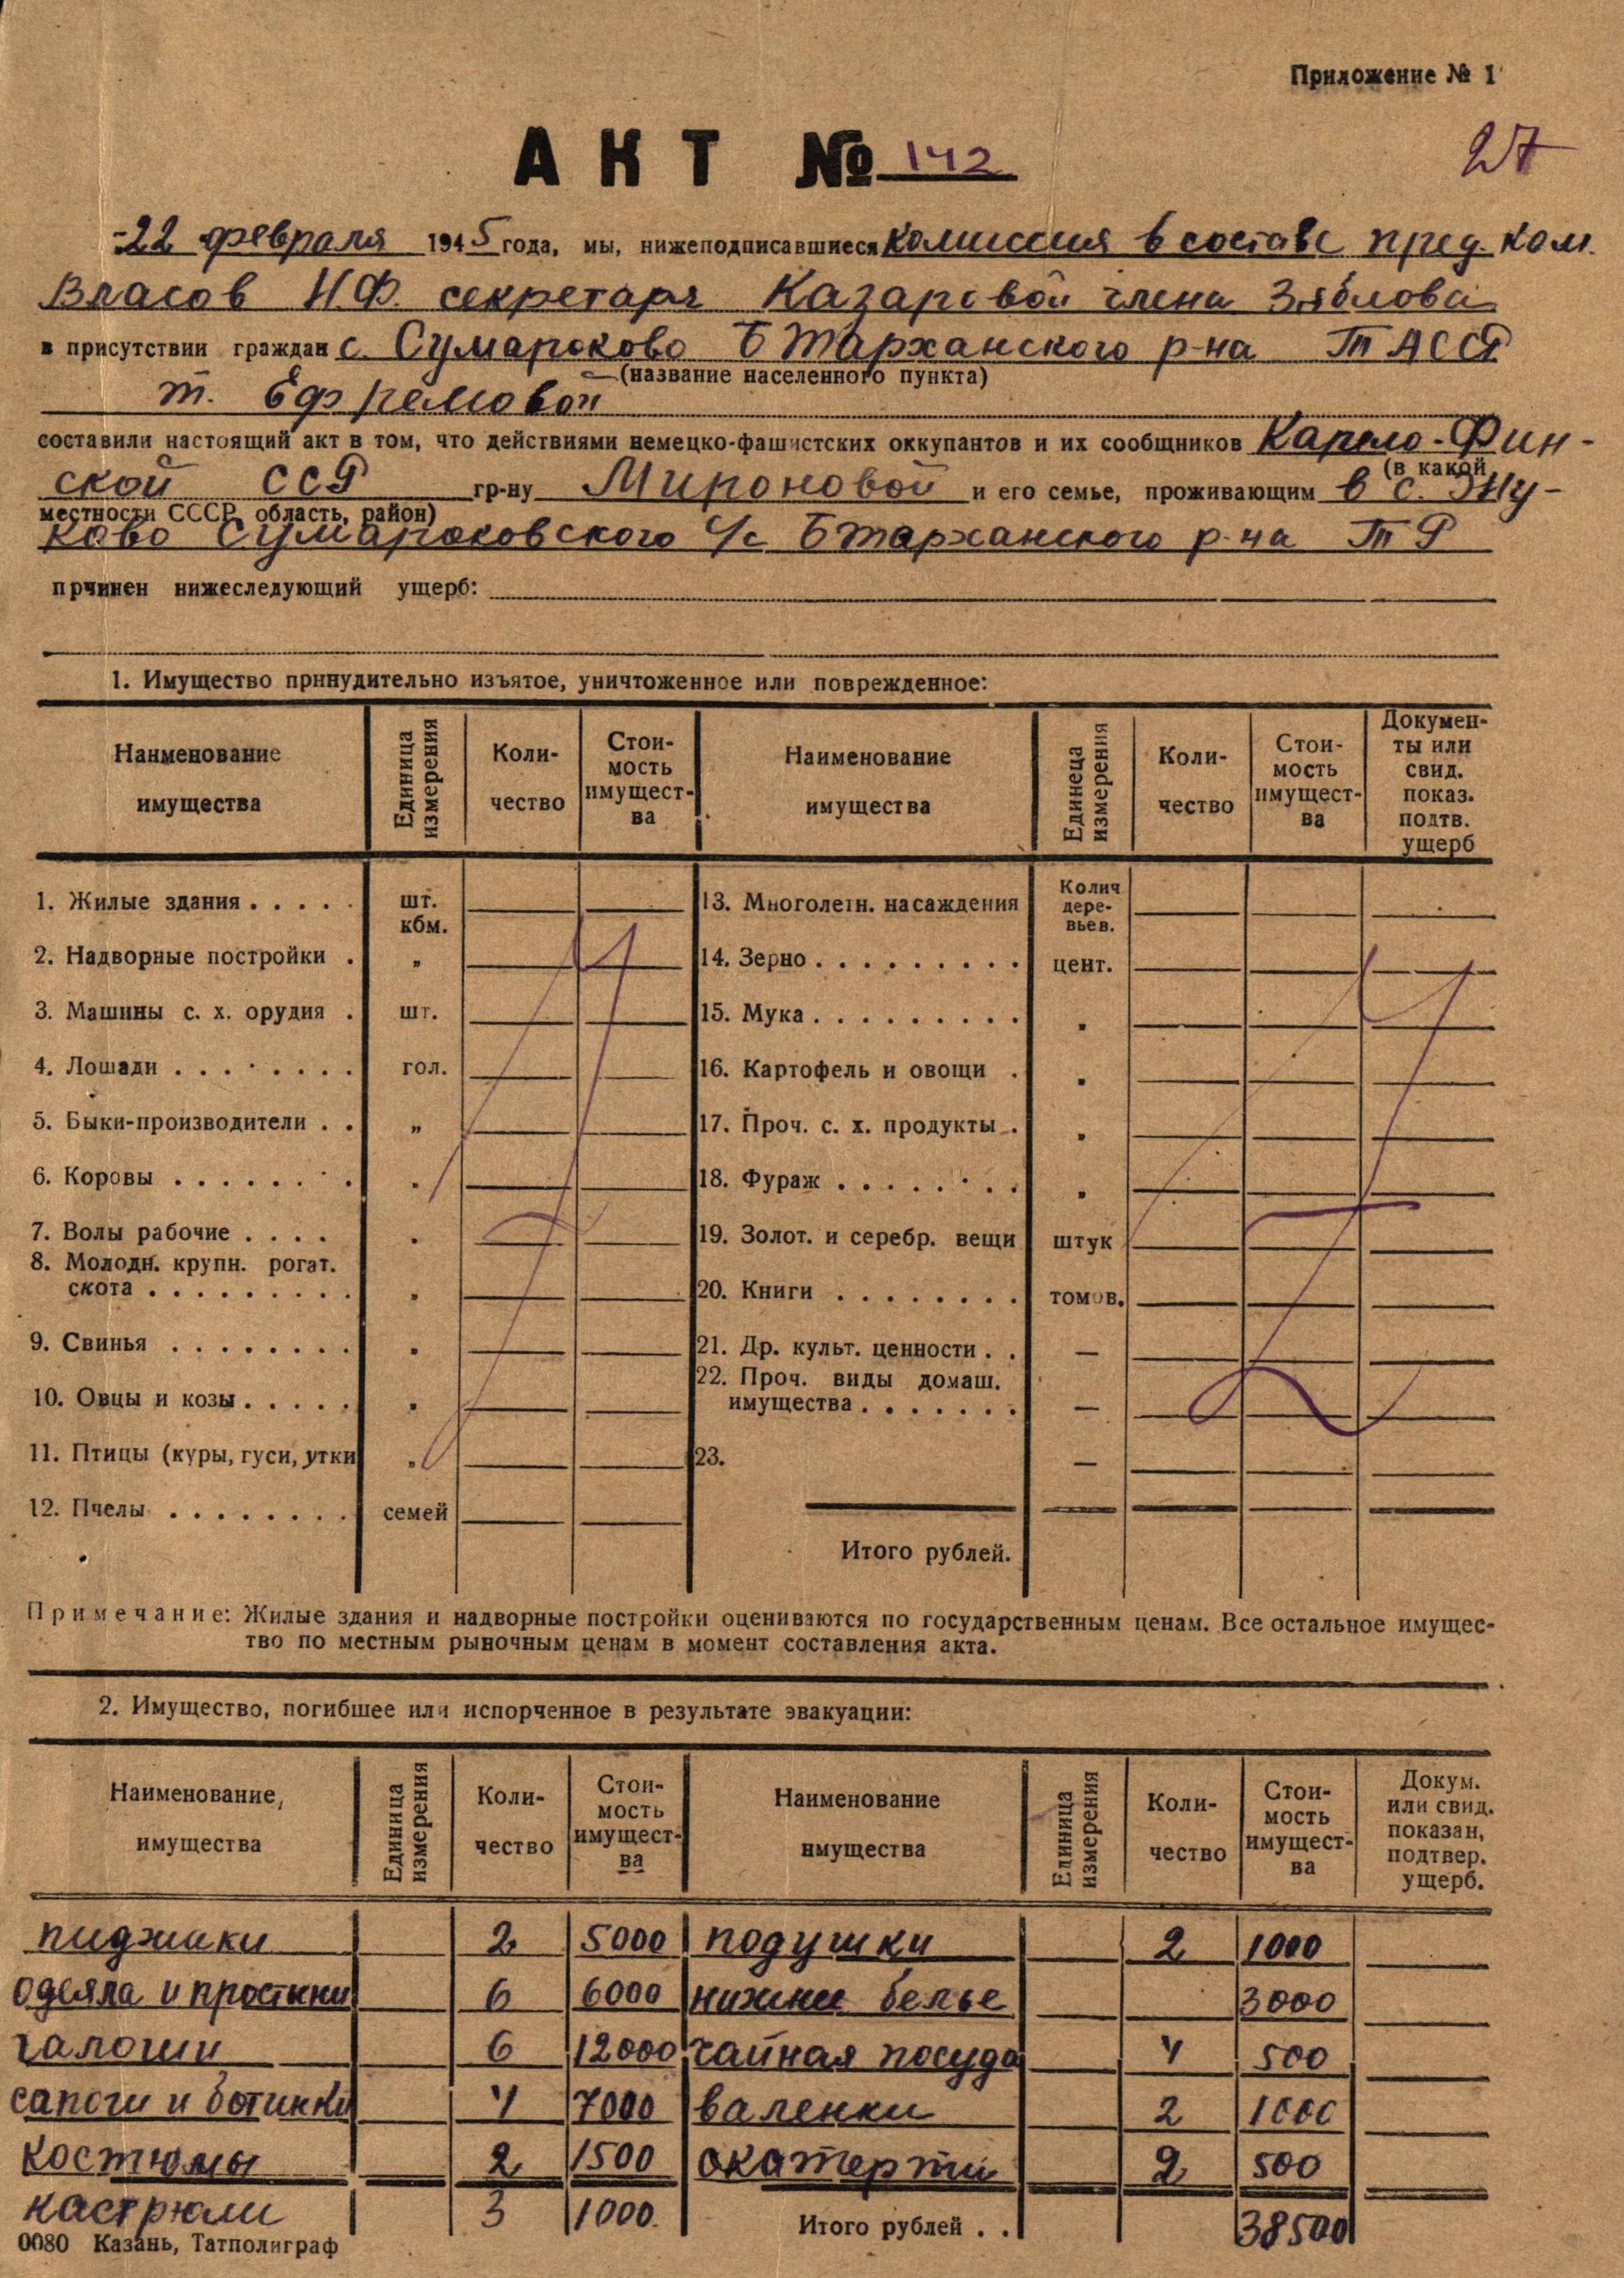 Приложение № 1
27
АКТ № 142
22 февраля 1945 года, мы, нижеподписавшиеся комиссия в составе пред. ком.
Власов Н.Ф. секретаря Казаровой члена Зяблова
в присутствии граждан с. Сумароково БТарханского р-на ТАССР
(название населенного пункта)
т. Ефремовой
составили настоящий акт в том, что действиями немецко-фашистских оккупантов и их сообщников Карело-Фин-
(в какой
ской ССР гр-ну Мироновой и его семье, проживающим в с.
местности СССР, область, район)
ково Сумароковского с/с БТарханского р-на ТР
прчинен нижеследующий ущерб:
1. Имущество принудительно изъятое, уничтоженное или поврежденное:
Наименование имущества | Единица измерения | Коли-чество | Стои-мость имущест-ва | Наименование имущества | Единеца измерения | Коли-чество | Стои-мость имущест-ва | Докумен-ты или свид. показ. подтв. ущерб
1. Жилые здания . . . . . шт. кбм. — — 13. Многолетн. насаждения Колич дере-вьев. — — —
2. Надворные постройки . „ — — 14. Зерно . . . . . . . . . цент. — — —
3. Машины с. х. орудия . шт. — — 15. Мука . . . . . . . . . „ — — —
4. Лошади . . . . . . . . гол. — — 16. Картофель и овощи . „ — — —
5. Быки-производители . . „ — — 17. Проч. с. х. продукты . „ — — —
6. Коровы . . . . . . . . „ — — 18. Фураж . . . . . . . . „ — — —
7. Волы рабочие . . . . „ — — 19. Золот. и серебр. вещи штук — — —
8. Молодн. крупн. рогат.
скота . . . . . . . . . „ — — 20. Книги . . . . . . . . томов. — — —
9. Свинья . . . . . . . . „ — — 21. Др. культ. ценности . . — — — —
10. Овцы и козы . . . . . „ — — 22. Проч. виды домаш. имущества . . . . . . . — — — —
11. Птицы (куры, гуси, утки „ — — 23. — — — —
12. Пчелы . . . . . . . . семей — —
Итого рублей.
Примечание: Жилые здания и надворные постройки оцениваются по государственным ценам. Все остальное имущес-
тво по местным рыночным ценам в момент составления акта.
2. Имущество, погибшее или испорченное в результате эвакуации:
Наименование, имущества | Единица измерения | Коли-чество | Стои-мость имущест-ва | Наименование имущества | Единица измерения | Коли-чество | Стои-мость имущест-ва | Докум. или свид. показан, подтвер. ущерб.
пиджаки 2 5000 подушки 2 1000
одеяла и простыни 6 6000 нижнее белье 3000
галоши 6 12000 чайная посуда 4 500
сапоги и ботинки 4 7000 валенки 2 1000
костюмы 2 1500 скатерти 2 500
кастрюли 3 1000 Итого рублей . . 38500
0080 Казань, Татполиграф